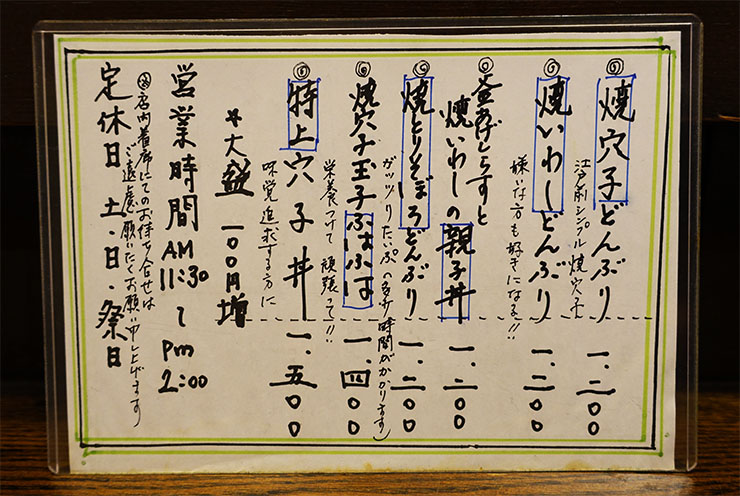 ◎焼穴子どんぶり 一、二〇〇
江戸前シンプル焼穴子
◎焼いわしどんぶり 一、二〇〇
嫌な方も好きになる!!
◎釜あげしらすと
焼いわしの親子丼 一、二〇〇
◎焼とりそぼろどんぶり 一、二〇〇
ガッツリたいぷの (多少時間がかかります)
◎焼穴子玉子ふはふは 一、四〇〇
栄養つけて 頑張って!!
◎特上穴子丼 一、五〇〇
味覚追求する方に
*大盛 一〇〇円増
営業時間 AM 11:30 〜 pm 2:00
店内着席にてのお待ち合せは
ご遠慮願いたくお願い申し上げます
定休日 土・日・祭日